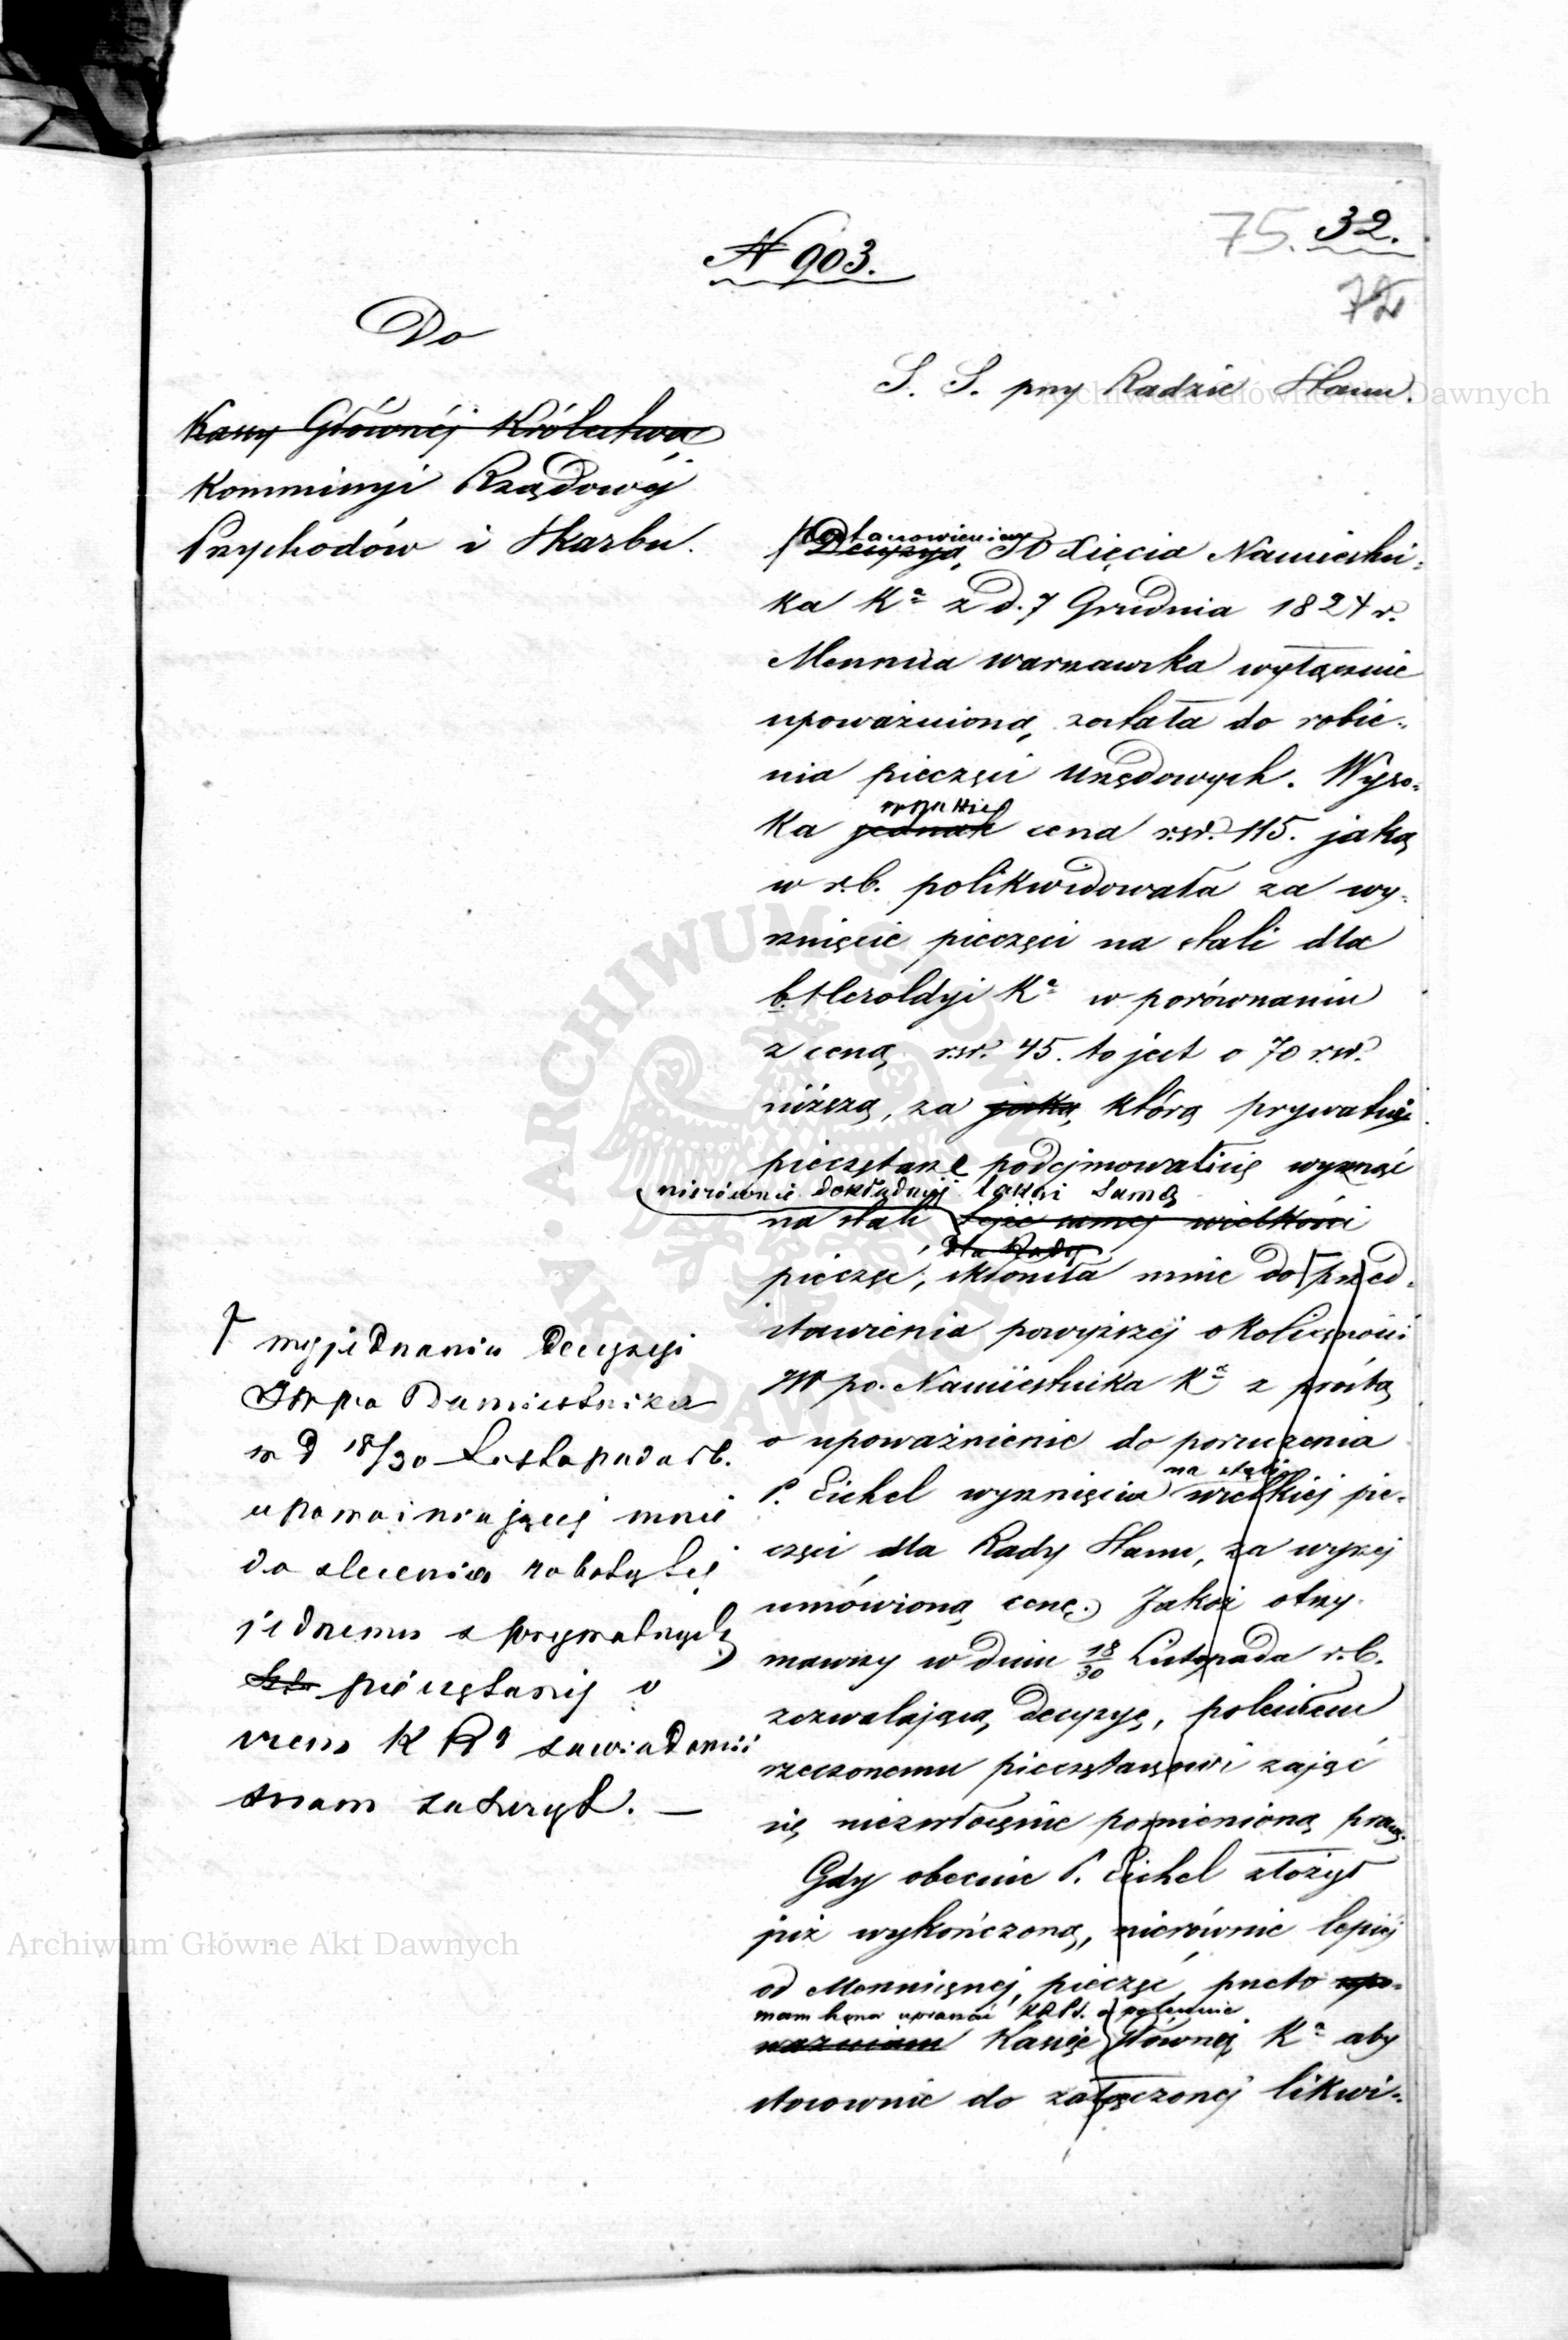 N 903.
75. 32.
72
Do
S. S. przy Radzie Stanu.
Kassy Głównéj Królestwa
Kommissyi Rządowéj
Przychodów i Skarbu.
Postanowieniem
Decyzyą JO Xięcia Namiestni-
ka Kª z d. 7 Grudnia 1824 r.
Mennica warszawska wyłącznie
upoważnioną została do robie-
nia pieczęci urzędowych. Wyso-
wszakże
ka jednak cena rsr. 115. jaką
w r.b. polikwidowała za wy-
rznięcie pieczęci na stali dla
b. Heroldyi Kª w porównaniu
z ceną rsr. 45. to jest o 70 rsr.
niższą, za jaką którą prywatni
pieczętarze podejmowali się wyrznąć
nierównie dokładniéj takąż samą
na stali tejże samej wielkości
dla Rady
pieczęć, skłoniła mnie do przed-
stawienia powyższej okoliczności
JW po. Namiestnika Kª z prośbą
o upoważnienie do poruczenia
na stali
P. Eichel wyrznięcia wielkiej pie-
częci dla Rady Stanu, za wyżej
umówioną cenę. Jakoż otrzy-
mawszy w dniu 18/30 Listopada r.b.
zezwalającą decyzyę, poleciłem
rzeczonemu pieczętarzowi zająć
się niezwłocznie pomienioną pracą.
Gdy obecnie P. Eichel złożył
już wykończoną, nierównie lepiéj
od Mennicznej, pieczęć, przeto upo-
mam honor upraszać KRPS. o polecenie
ważniam Kassie Głównej Kª aby
stosownie do załączonej likwi-
wyjednania decyzyi
JW po Namiestnika
w d 18/30 Listopada rb.
upoważniającej mnie
do zlecenia roboty téj
jednemu z prywatnych
pieczętarzy o
czem K R zawiadomić
mam zaszczyt. —
ARCHIWUM GŁÓWNE AKT DAWNYCH
Archiwum Główne Akt Dawnych
Archiwum Główne Akt Dawnych